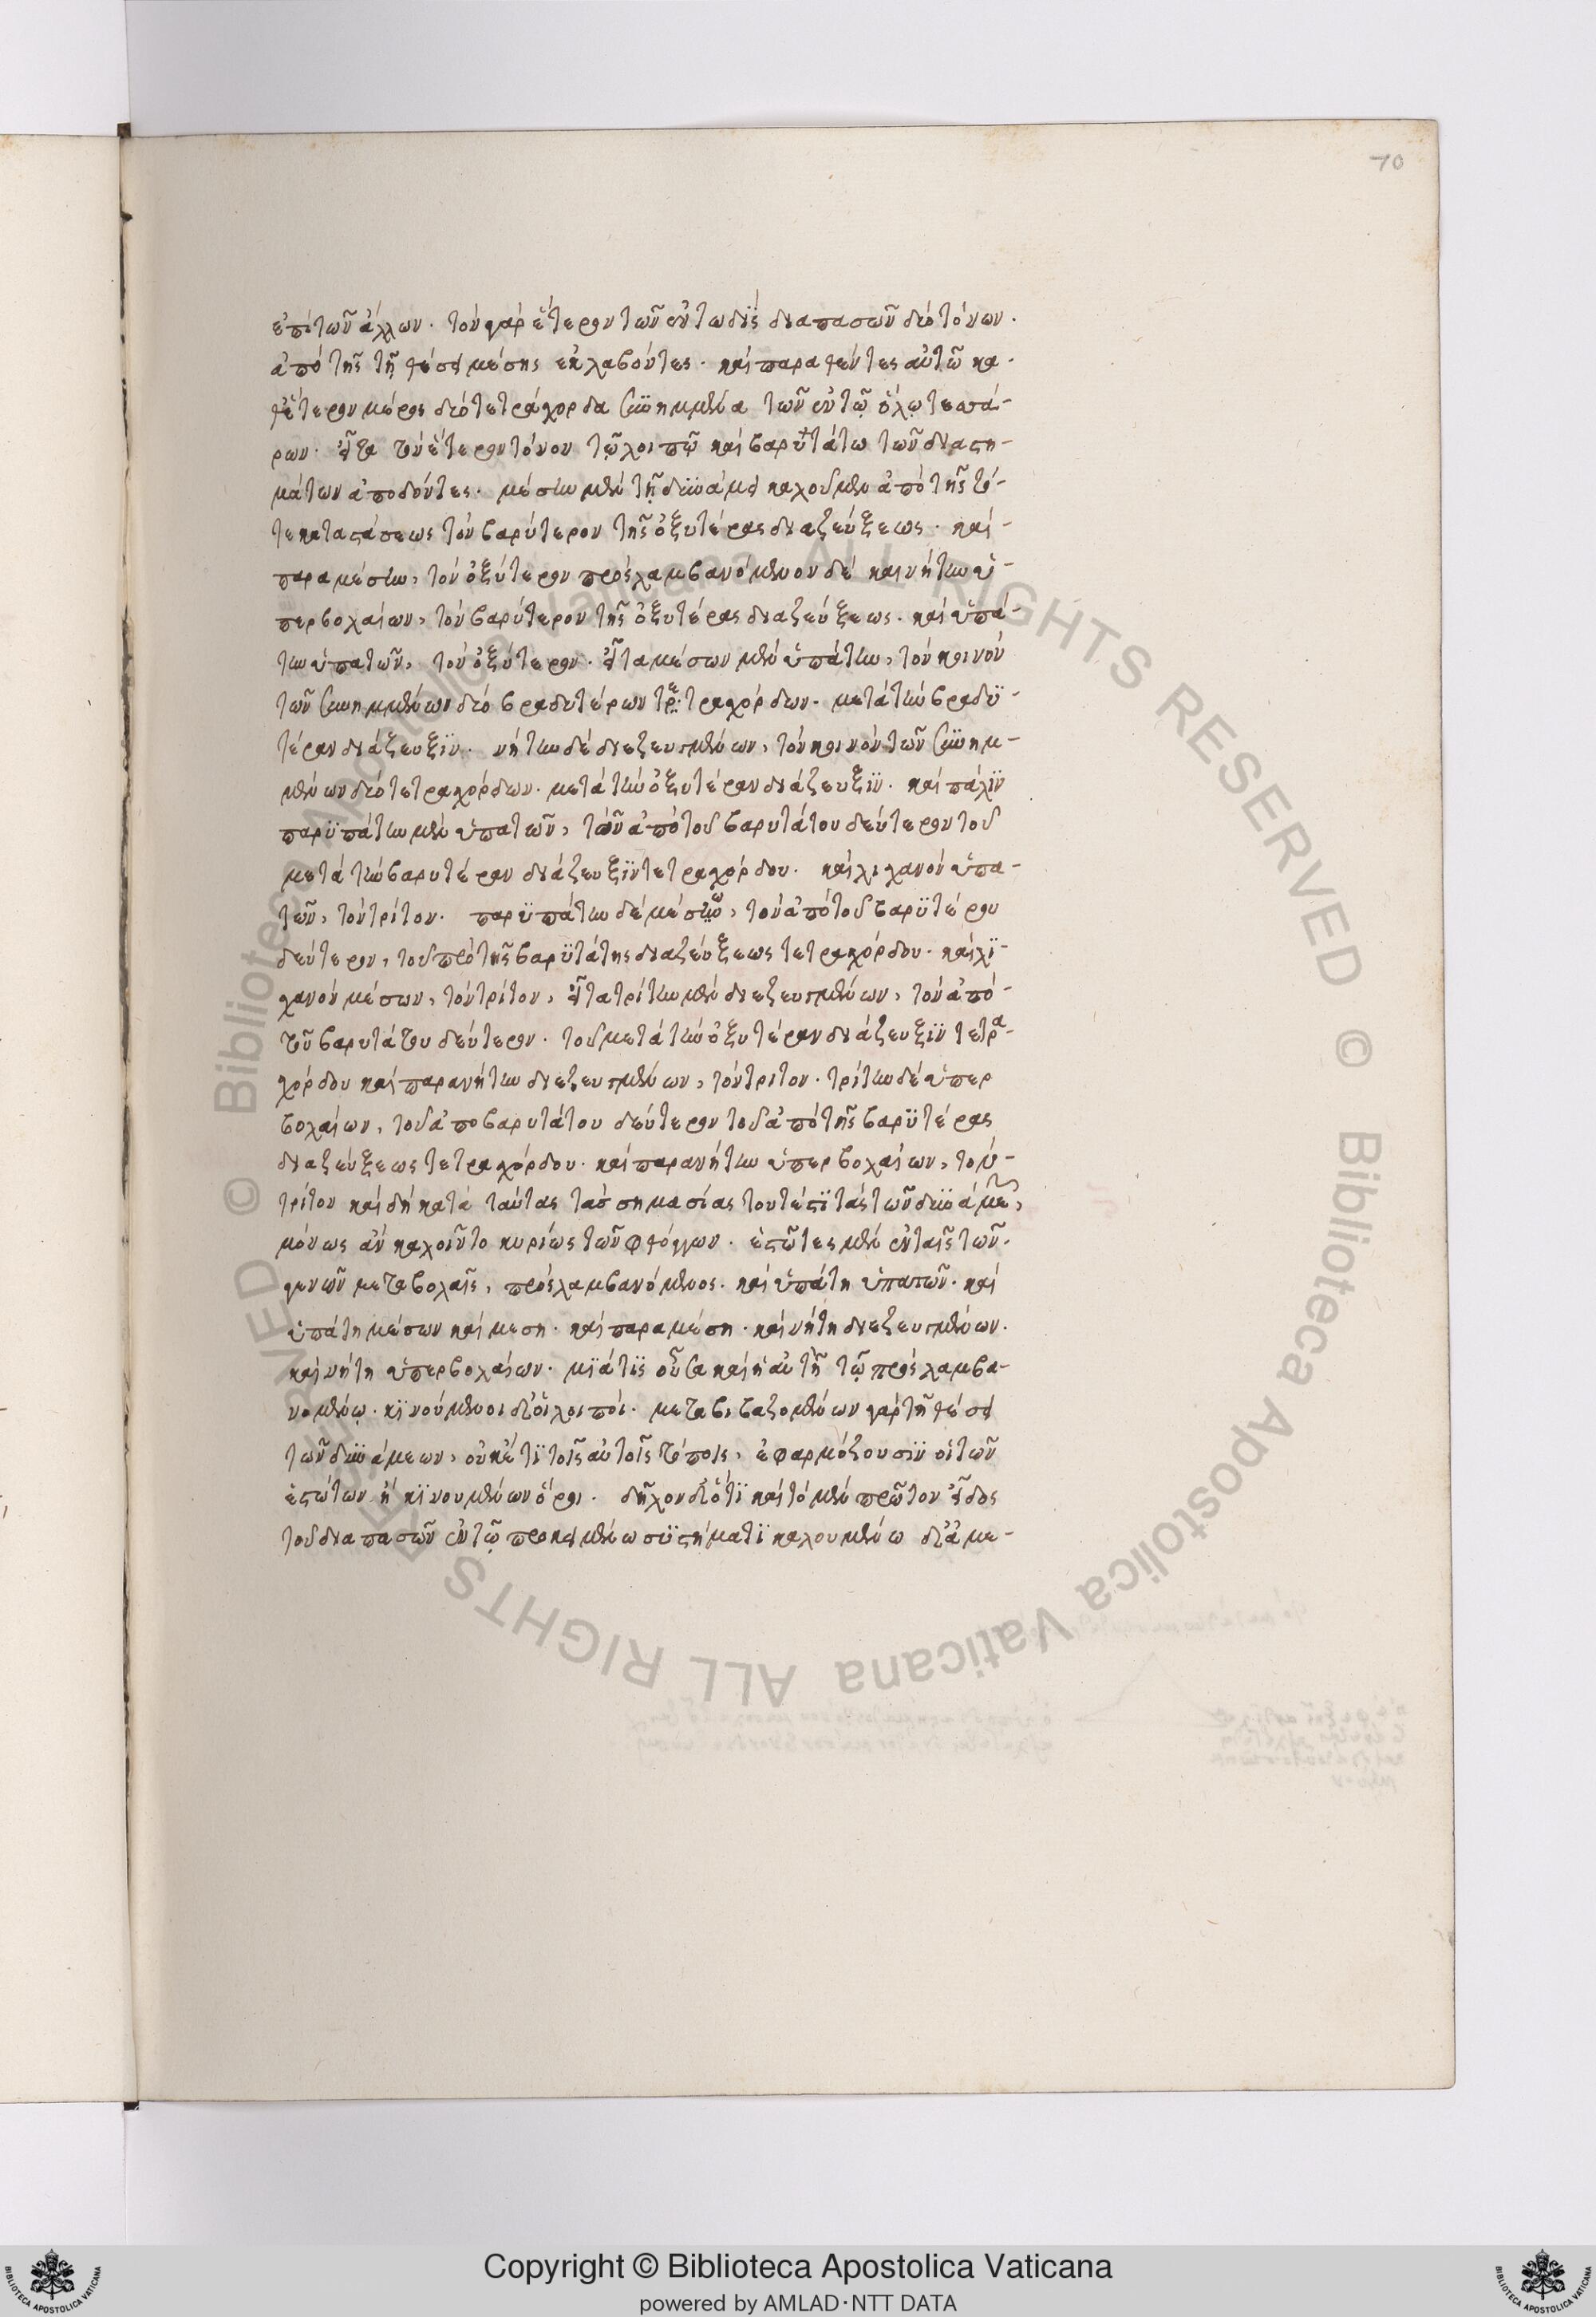 70
ἐπὶ τῶν ἄλλων. τὸν γὰρ ἕτερον τῶν ἐν τω δὶς διαπασῶν δύο τόνων.
ἀπὸ τῆς τῆ θέσει μέσης ἐκλαβόντες. καὶ παραθέντες αὐτῶ κα-
θ' ἕτερον μέρος δύο τετράχορδα συνημμένα τῶν ἐν τῶ ὅλω τεσσά-
ρων. εἶτα τὸν ἕτερον τόνον τῶ λοιπῶ καὶ βαρυτάτω τῶν διαστη-
μάτων ἀποδόντες. μέσην μὲν τῆ δυνάμει καλοῦμεν ἀπὸ τῆς τό-
τε καταστάσεως τὸν βαρύτερον τῆς ὀξυτέρας διαζεύξεως. καὶ -
παραμέσην, τὸν ὀξύτερον προσλαμβανόμενον δὲ καὶ νήτην ὑ-
περβολαίων, τὸν βαρύτερον τῆς ὀξυτέρας διαζεύξεως. καὶ ὑπά-
την ὑπατῶν, τὸν ὀξύτερον. εἶτα μέσων μὲν ὑπάτην, τὸν κοινὸν
τῶν συνημμένων δύο βραδυτέρων τετραχόρδων. μετὰ τὴν βραδϋ-
τέραν διάζευξϊν. νήτην δὲ διεζευγμένων, τὸν κοινὸν τῶν συνημ-
μένων δύο τετραχόρδων. μετὰ τὴν ὀξυτέραν διάζευξϊν. καὶ πάλϊν
παρϋπάτην μὲν ὑπατῶν, τὸν ἀπὸ τοῦ βαρυτάτου δεύτερον τοῦ
μετὰ τὴν βαρυτέραν διάζευξϊν τετραχόρδου. καὶ λιχανὸν ὑπα-
τῶν, τὸν τρίτον. παρϋπάτην δὲ μέσων, τὸν ἀπὸ τοῦ βαρϋτέρου
δεύτερον, τοῦ πρὸ τῆς βαρϋτάτης διαζεύξεως τετραχόρδου. καὶ λϊ-
χανὸν μέσων, τὸν τρίτον, εἶτα τρίτην μὲν διεζευγμένων, τὸν ἀπὸ -
τοῦ βαρυτάτου δεύτερον. τοῦ μετὰ τὴν ὀξυτέραν διάζευξϊν τετρα-
χόρδου καὶ παρανήτην διεζευγμένων, τὸν τριτον. τρίτην δὲ ὑπερ
βολαίων, τοῦ ἀπο βαρυτάτου δεύτερον τοῦ ἀπὸ τῆς βαρϋτέρας
διαζεύξεως τετραχόρδου. καὶ παρανήτην ὑπερβολαίων, τὸν -
τρίτον καὶ δὴ κατὰ ταύτας τὰς σημασίας τουτέστϊ τὰς τῶν δυνάμεων,
μόνως ἂν καλοῖντο κυρίως τῶν φθόγγων. ἑστῶτες μὲν ἐν ταῖς τῶν.
γενῶν μεταβολαῖς, προσλαμβανόμενος. καὶ ὑπάτη ὑπατῶν. καὶ
ὑπάτη μέσων καὶ μεση. καὶ παραμέση. καὶ νήτη διεζευγμένων.
καὶ νήτη ὑπερβολαίων. μϊά τϊς οὖσα καὶ ἡ αὐτὴ τῶ προσλαμβα-
νομένω. κϊνούμενοι δ' οἱ λοιποὶ. μεταβιβαζομένων γὰρ τῆ θέσει
τῶν δυνάμεων, οὐκέτϊ τοῖς αὐτοῖς τόποις, ἐφαρμόζουσϊν οἱ τῶν
ἑστώτων ἢ κϊνουμένων ὅροι. δῆλον δ' ὅτϊ καὶ τὸ μὲν πρῶτον εἶδος
τοῦ διαπασῶν ἐν τῶ προκειμένω συστήματϊ καλουμένω δὲ ἀμε-